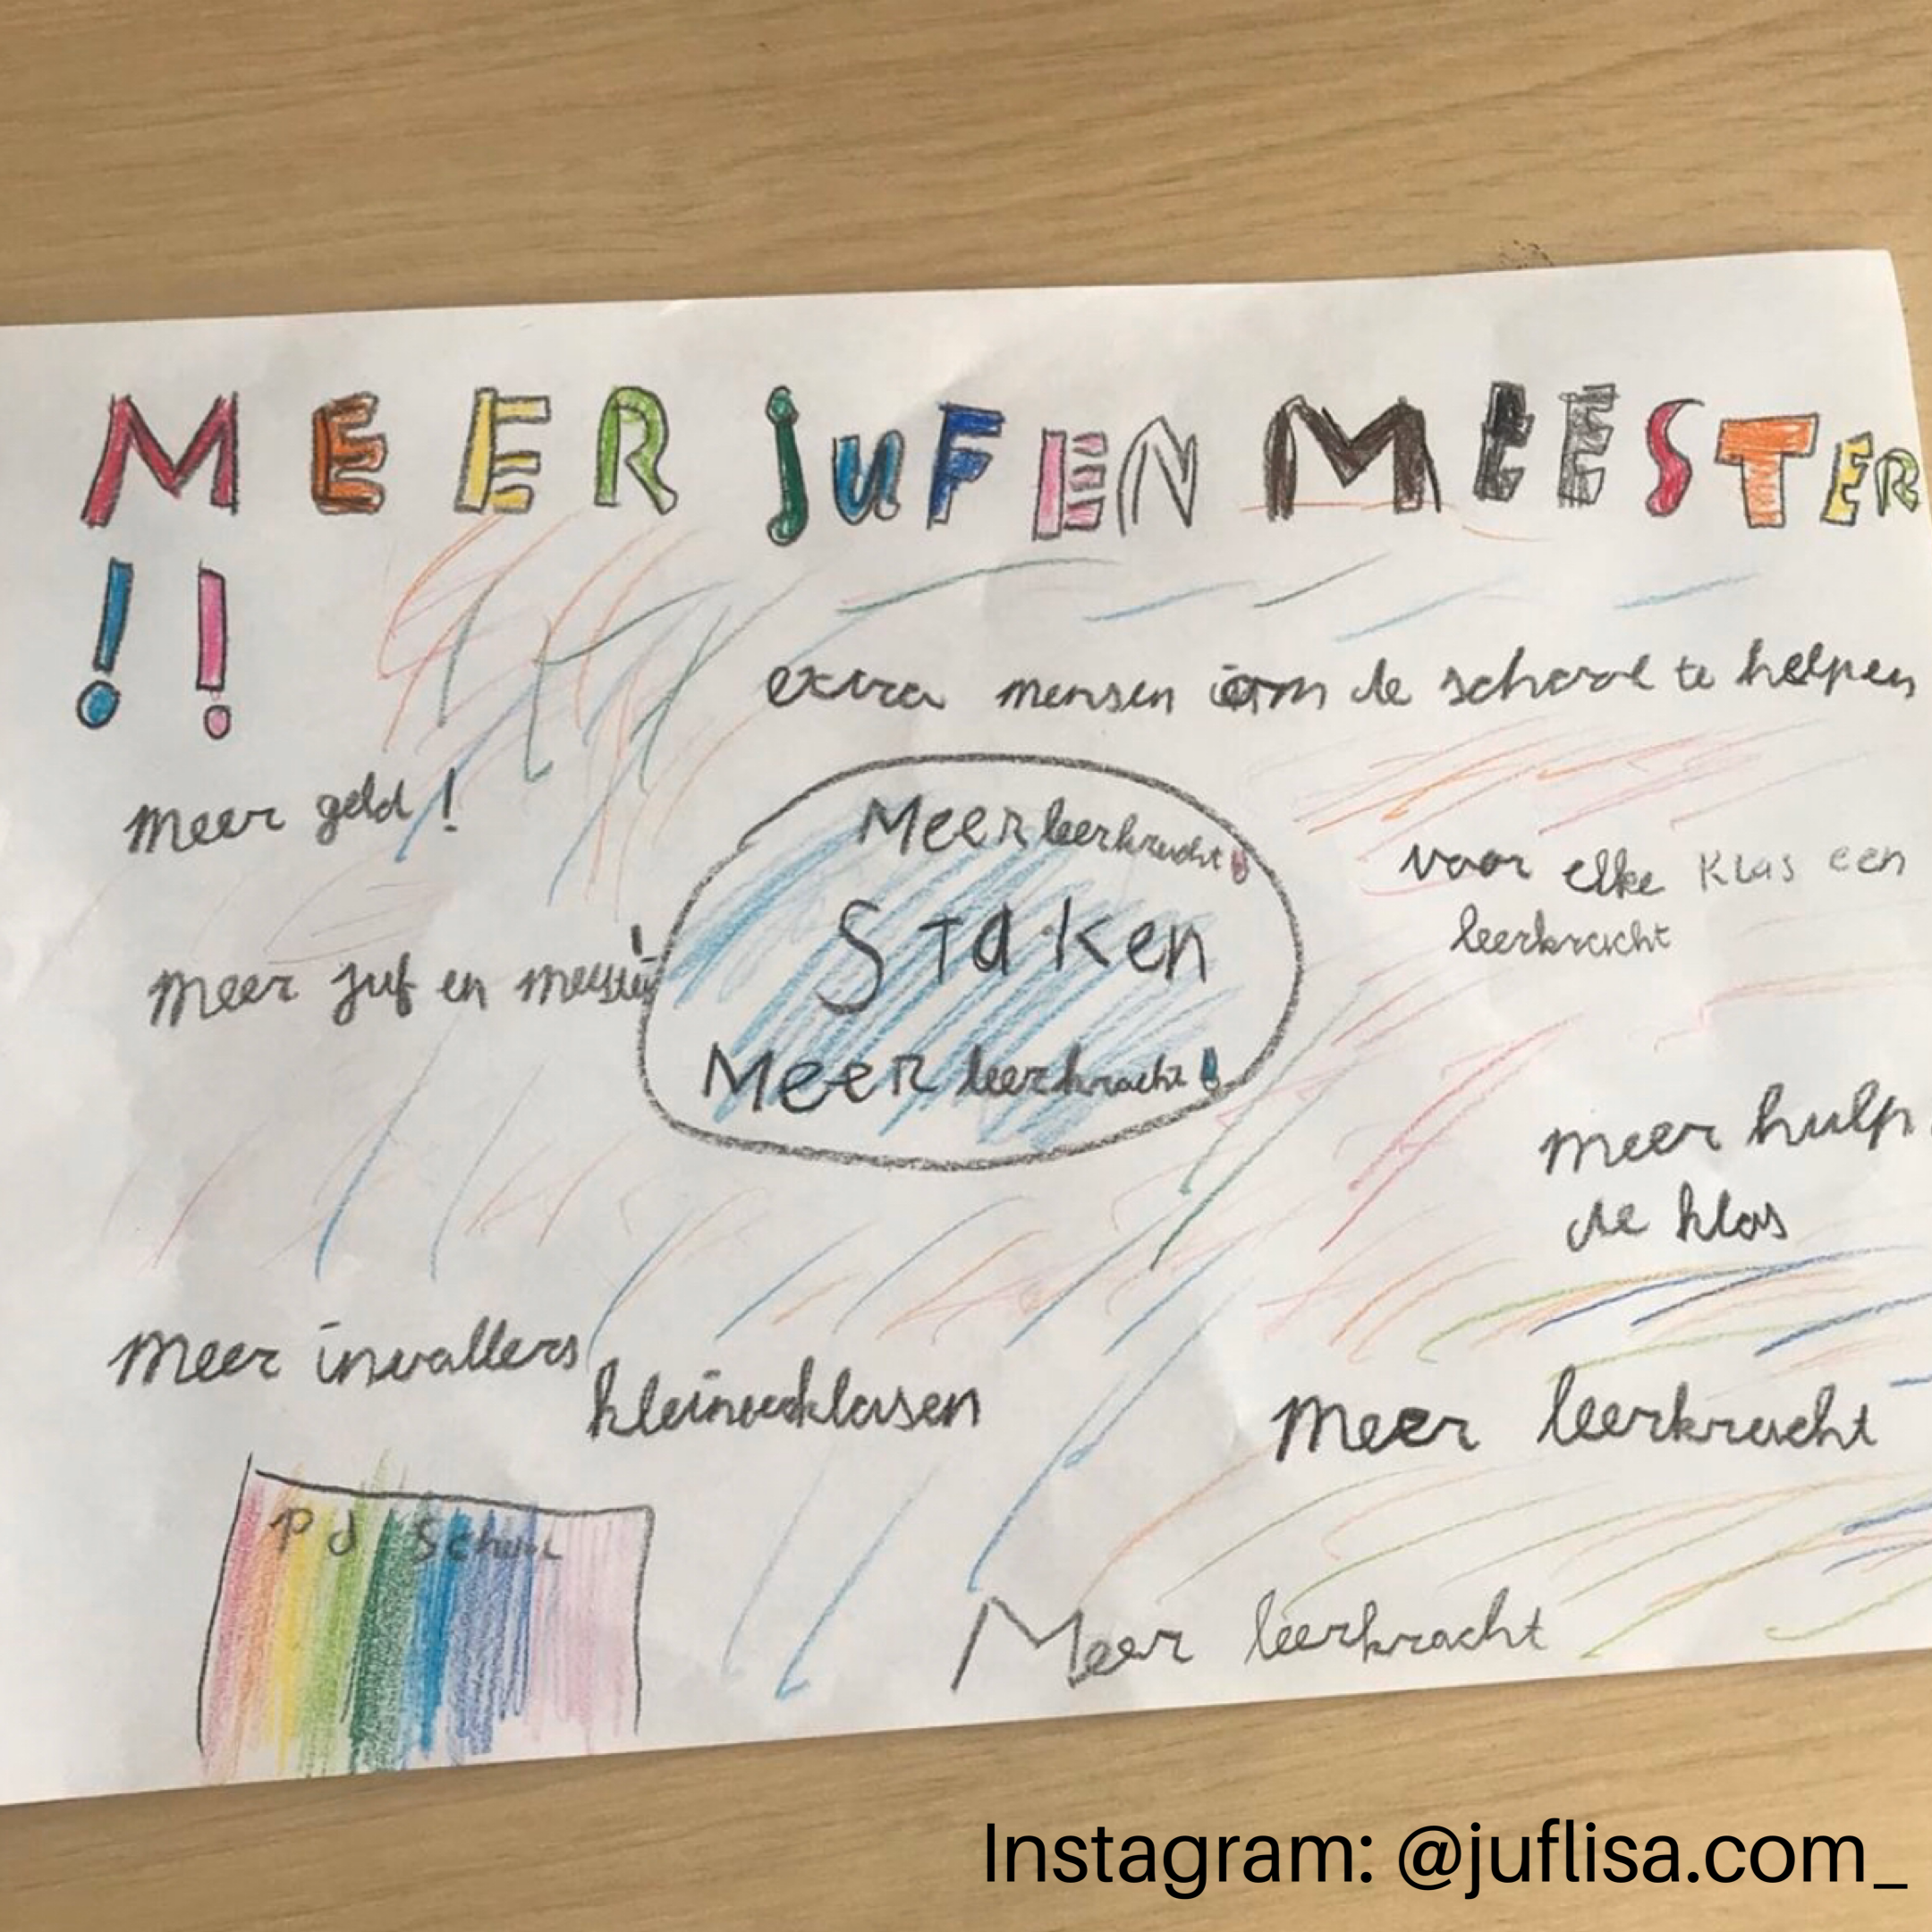 MEER JUF EN MEESTER
!!
extra mensen om de school te helpen
meer geld!
Meer leerkracht!
voor elke klas een
leerkracht
Staken
meer juf en meester!
Meer leerkracht!
meer hulp
de klas
meer invallers
kleineerklasen
meer leerkracht
Pd School
Meer leerkracht
Instagram: @juflisa.com_